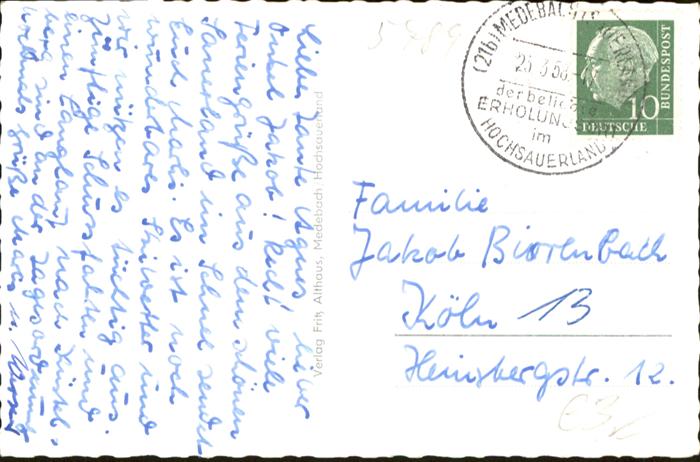 Liebe Tante Agnes lieber
Onkel Jakob! Recht viele
Feriengrüße aus dem schönen
Sauerland im Schnee sendet
Euch Marlis. Es ist noch
wunderbares Skiwetter und
wir nützen es tüchtig aus.
Zünftige Schussfahrten und
einen Langlauf nach
sind an der Tagesordnung
Grüße
Verlag Fritz Althaus, Medebach Hochsauerland
5989
(21b) MEDEBACH
der beliebte
ERHOLUNGS
im
HOCHSAUERLAND
10
DEUTSCHE
BUNDESPOST
Familie
Jakob Bierenbach
Köln 13
Heinsbergstr. 12.
€3,